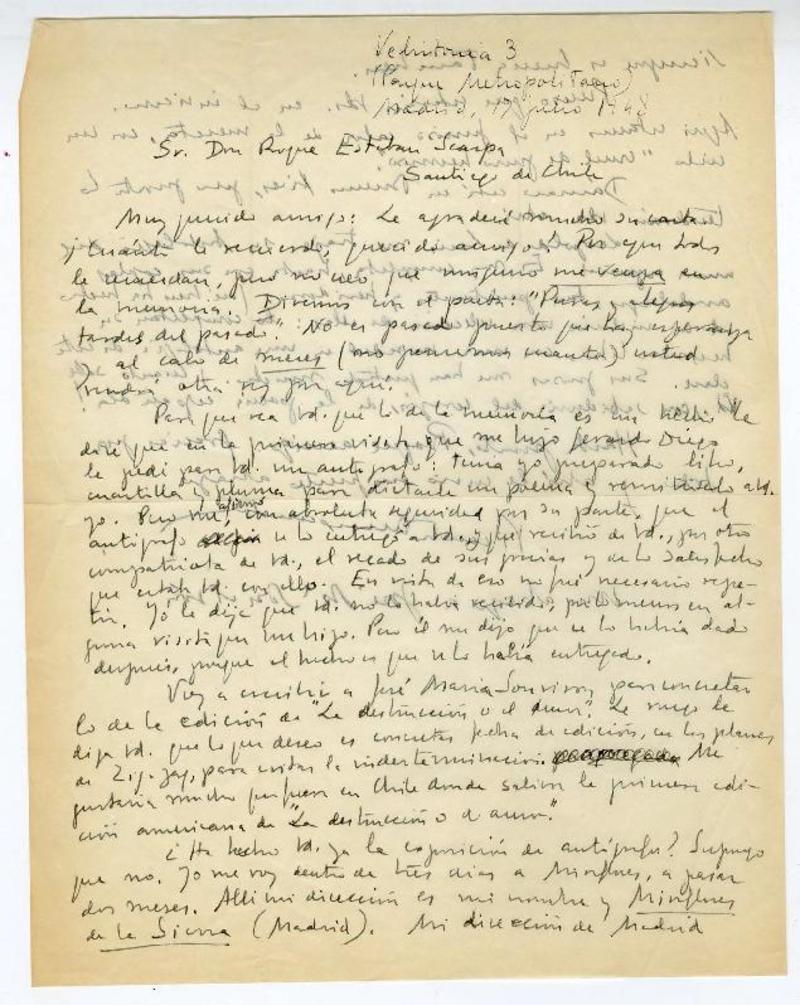 Velintonia 3
(Parque Metropolitano)
Madrid, 17 julio 1948
Sr. Don Roque Esteban Scarpa
Santiago de Chile
Muy querido amigo: Le agradecí mucho su carta.
¡Cuánto le recuerdo, querido amigo! Por aquí todos
le recuerdan, pero no creo que ninguno me venza en
la memoria. Diremos con el poeta: "Puras y alegres
tardes del pasado." No es pasado puesto que hay esperanza
y al cabo de meses (no pensemos cuántos) usted
vendrá otra vez por aquí.
Para que vea Vd. que lo de la memoria es un hecho le
diré que en la primera visita que me hizo Gerardo Diego
le pedí para Vd. un autógrafo: tenía yo preparado libro,
cuartilla y pluma para dictarle un poema y remitírselo a Vd.
yo. Pero me afirmó, con absoluta seguridad por su parte, que el
autógrafo se lo entregó a Vd., y que recibió de Vd., por otro
compatriota de Vd., el recado de sus gracias y de lo satisfecho
que estaba Vd. con ello. En vista de eso no fué necesario repe-
tir. Yo le dije que Vd. no lo había recibido, por lo menos en al-
guna visita que me hizo. Pero él me dijo que se lo había dado
después, porque el hecho es que se lo había entregado.
Voy a escribir a José María Souviron para concretar
lo de la edición de "La destrucción o el amor". Le ruego le
diga Vd. que lo que deseo es concretar fecha de edición, en los planes
de Zig-zag, para evitar la indeterminación. Me
gustaría mucho que fuera en Chile donde saliera la primera edi-
ción americana de "La destrucción o el amor."
¿Ha hecho Vd. ya la exposición de autógrafos? Supongo
que no. Yo me voy dentro de tres días a Miraflores, a pasar
dos meses. Allí mi dirección es mi nombre y Miraflores
de la Sierra (Madrid). Mi dirección de Madrid